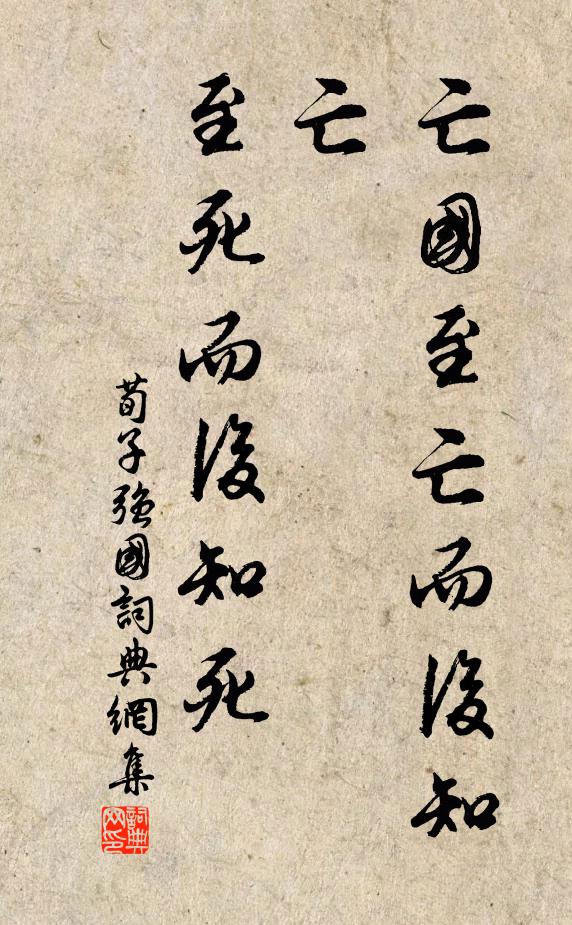 亡國至亡而後知
亡
至死而後知死
荀子強國詞典網集
詞典
网印